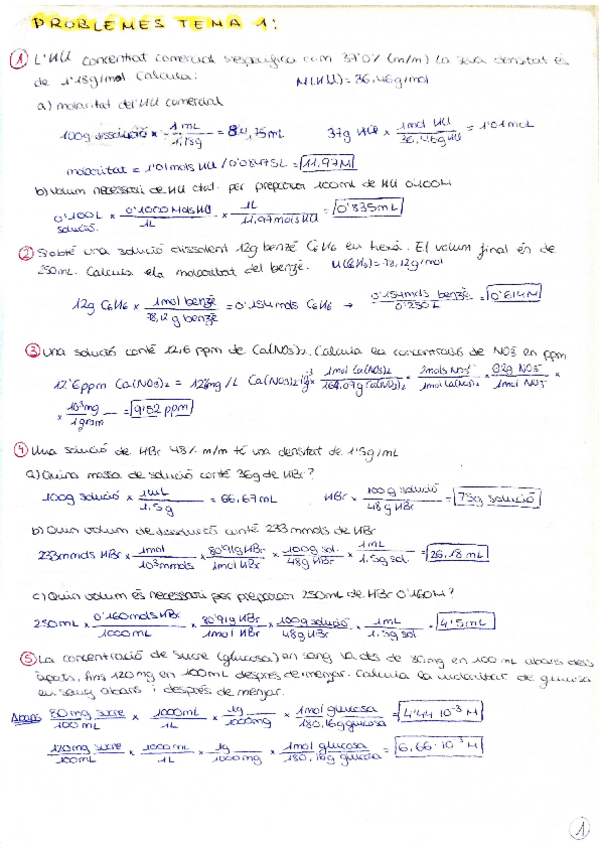 PROBLEMES TEMA 1:
① L'HCl concentrat comercial s'especifica com 37'0% (m/m) la seva densitat és
de 1'18g/mol Calcula: M(HCl)=36,46g/mol
a) molaritat del HCl comercial
100g dissolució × 1mL / 1,18g = 84,75mL 37g HCl × 1mol HCl / 36,46g HCl = 1'01mol
molaritat = 1'01mols HCl / 0'08475L = 11,97M
b) Volum necessari de HCl ctat. per preparar 100mL de HCl 0'100M
0'100L solució. × 0'1000 Mols HCl / 1L × 1L / 11,97mols HCl = 0'835mL
② S'obté una solució dissolent 12g benzè C6H6 en hexà. El volum final és de
250mL. Calcula la molaritat del benzè. M(C6H6)=78,12g/mol
12g C6H6 × 1mol benzè / 78,12 g benzè = 0'154mols C6H6 → 0'154mols benzè / 0'250L = 0'614M
③ Una solució conté 12,6 ppm de Ca(NO3)2. Calcula la concentració de NO3⁻ en ppm
12'6ppm Ca(NO3)2 = 12'6mg/L Ca(NO3)2 × 1mol Ca(NO3)2 / 164.07g Ca(NO3)2 × 2mols NO3⁻ / 1mol Ca(NO3)2 × 62g NO3⁻ / 1mol NO3⁻ ×
× 10³mg / 1gram = 9'52 ppm
④ Una solució de HBr 48% m/m té una densitat de 1'5g/mL
a) Quina massa de solució conté 36g de HBr?
100g solució × 1mL / 1,5g = 66,67mL HBr × 100g solució / 48g HBr = 75g solució
b) Quin volum de dissolució conté 233mmols de HBr
233mmols HBr × 1mol / 10³mmols × 80'91g HBr / 1mol HBr × 100g sol. / 48g HBr × 1mL / 1.5g sol. = 26,18 mL
c) Quin volum és necessari per preparar 250mL de HBr 0'160M?
250mL × 0'160mols HBr / 1000mL × 80'91g HBr / 1mol HBr × 100g solució / 48g HBr × 1mL / 1.5g sol = 4'5mL
⑤ La concentració de sucre (glucosa) en sang va des de 80mg en 100 mL abans dels
àpats, fins 120mg en 100mL després de menjar. Calcula la molaritat de glucosa
en sang abans i després de menjar.
Abans 80mg sucre / 100mL × 1000mL / 1L × 1g / 1000mg × 1mol glucosa / 180,16g glucosa = 4'44·10⁻³ M
120mg sucre / 100mL × 1000mL / 1L × 1g / 1000mg × 1mol glucosa / 180,16g glucosa = 6,66·10⁻³ M
1